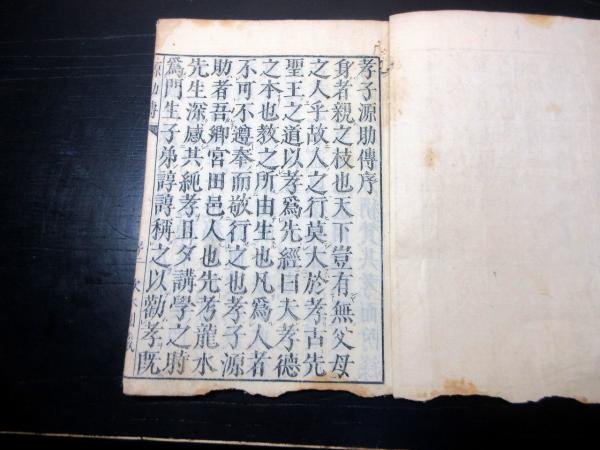 孝子源助傳序
身者親之枝也天下豈有無父母
之人乎故人之行莫大於孝古先
聖王之道以孝爲先經曰夫孝德
之本也敎之所由生也凡爲人者
不可不遵奉而敬行之也孝子源
助者吾鄕宮田邑人也先考龍水
先生深感其純孝且夕講學之時
爲門生子弟諄諄稱之以勸孝旣
源助傳